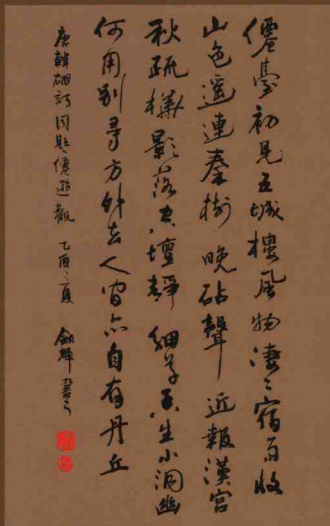 僊臺初見五城樓風物淒〻宿雨收
山色遙連秦樹晚砧聲近報漢宮
秋疏影落空壇靜細草香生小洞幽
何用別尋方外去人間亦自有丹丘
唐韓翃詩同題僊遊觀 乙酉之夏 書